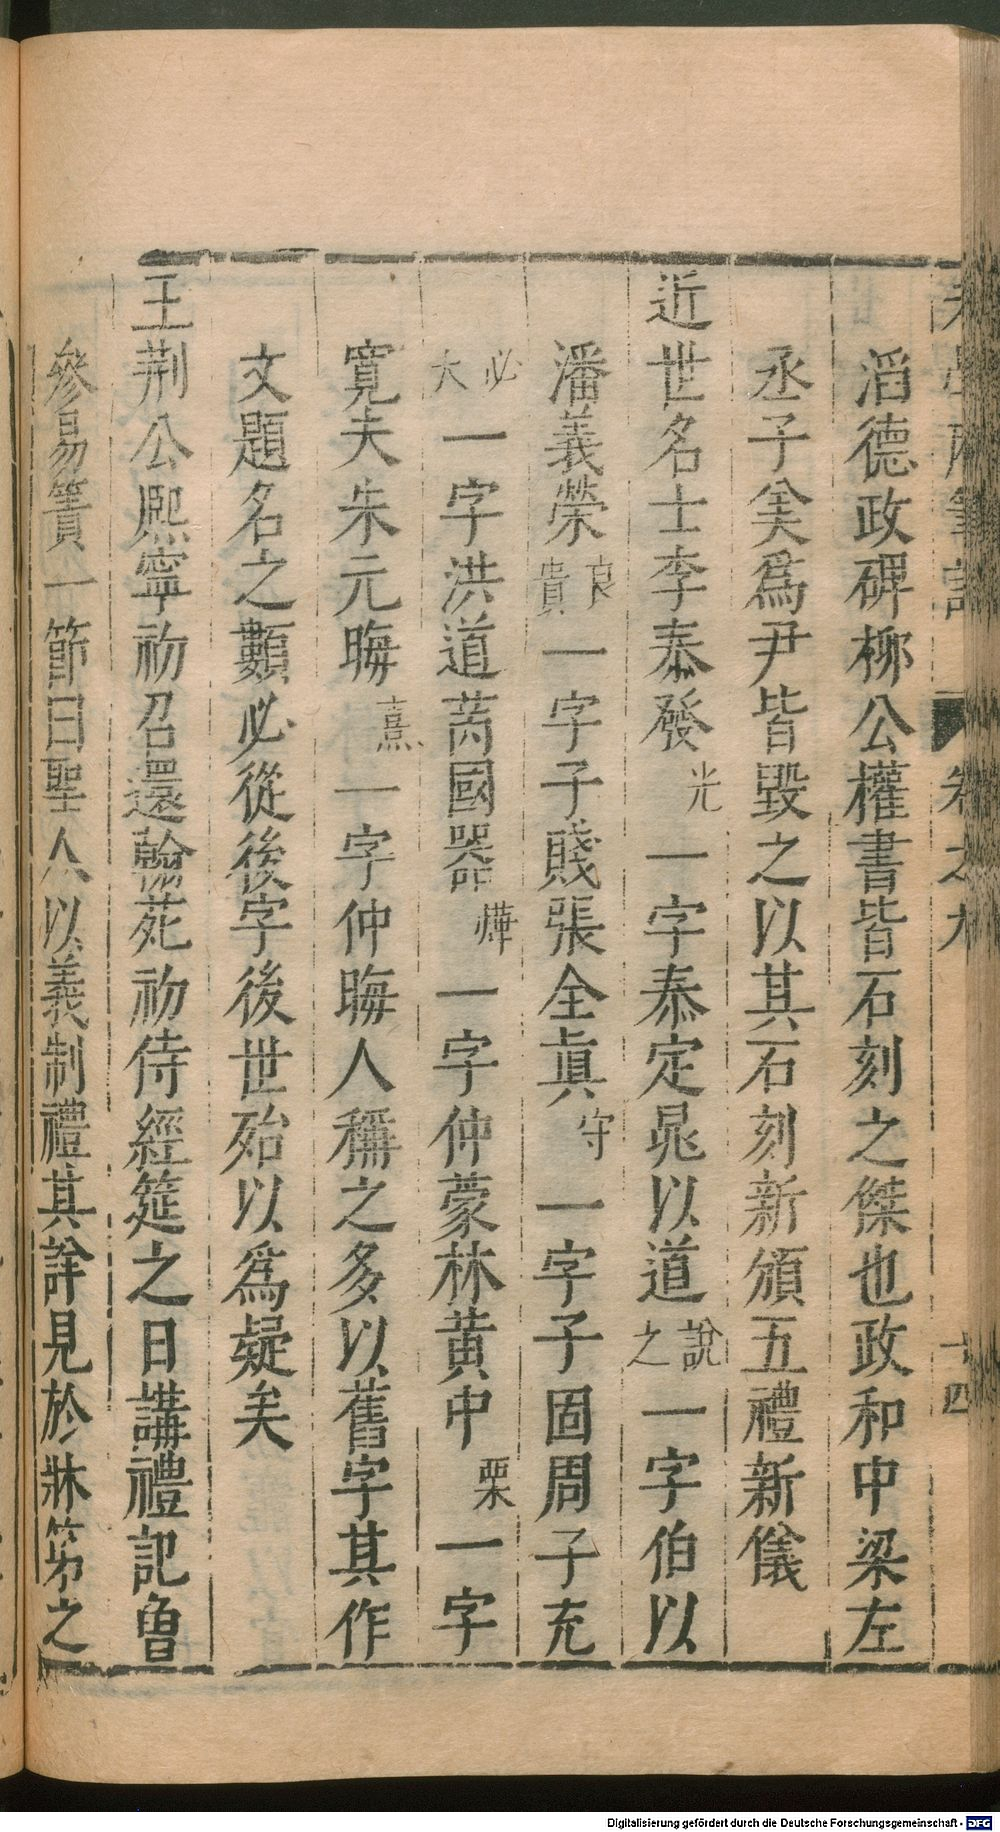 老學庵筆記 卷之九 十四
滔德政碑柳公權書皆石刻之傑也政和中梁左
丞子美爲尹皆毀之以其石刻新頒五禮新儀
近世名士李泰發光一字泰定晁以道說之一字伯以
潘義榮良貴一字子賤張全眞守一字子固周子充
必大一字洪道芮國器燁一字仲蒙林黃中栗一字
寬夫朱元晦熹一字仲晦人稱之多以舊字其作
文題名之類必從後字後世殆以爲疑矣
王荊公熙寧初召還翰苑初侍經筵之日講禮記曾
參易簀一節曰聖人以義制禮其詳見於牀笫之
Digitalisierung gefördert durch die Deutsche Forschungsgemeinschaft - DFG